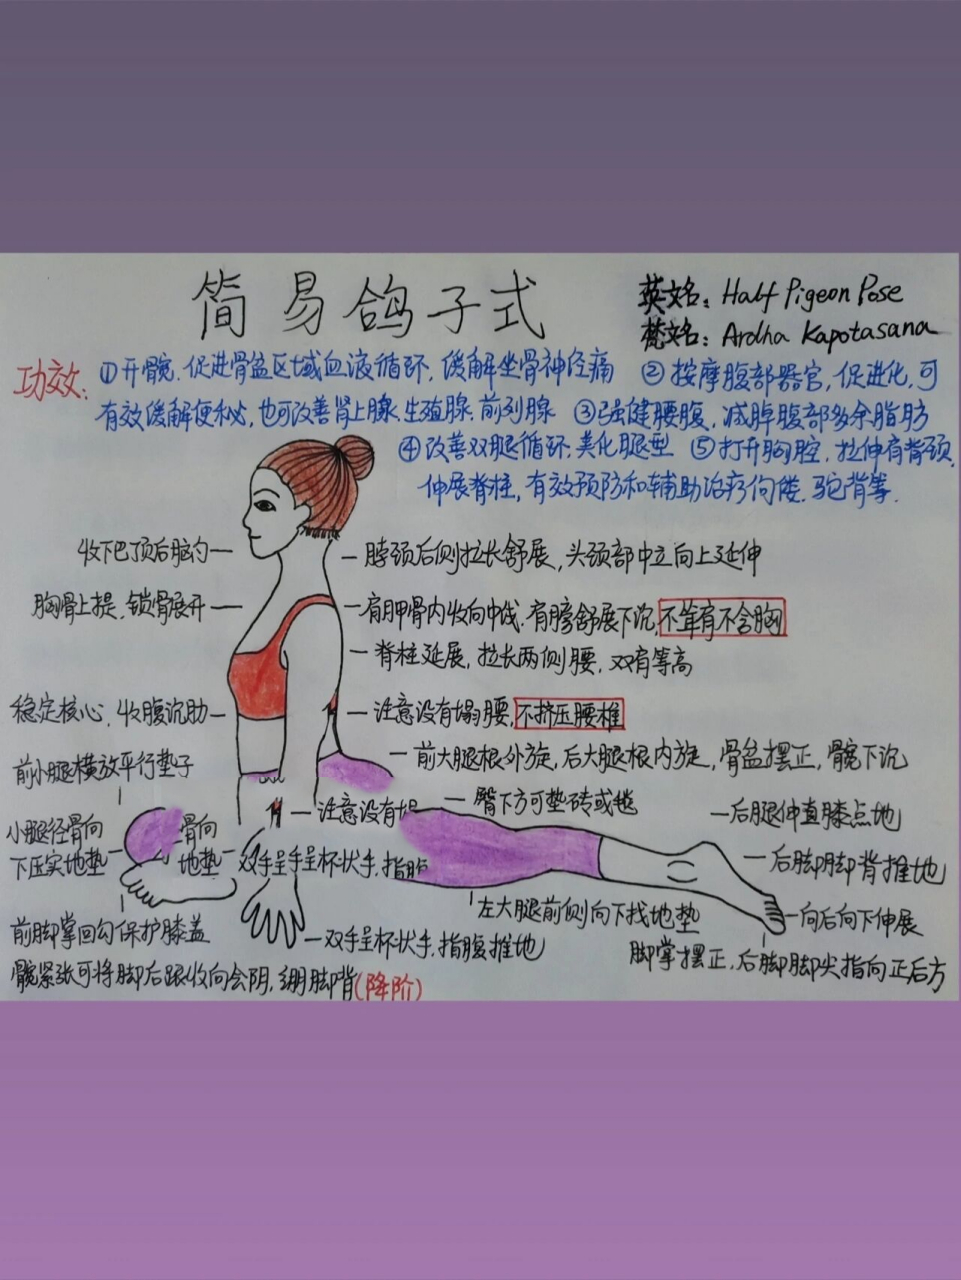 简易鸽子式
英文名：Half Pigeon Pose
梵文名：Ardha Kapotasana
功效：①开髋.促进骨盆区域血液循环，缓解坐骨神经痛 ②按摩腹部器官，促进化，可
有效缓解便秘，也可改善肾上腺.生殖腺.前列腺 ③强健腰腹，减掉腹部多余脂肪
④改善双腿循环.美化腿型 ⑤打开胸腔，拉伸肩背颈.
伸展脊柱，有效预防和辅助治疗佝偻.驼背等.
收下巴顶后脑勺
脖颈后侧拉长舒展，头颈部中立向上延伸
胸骨上提，锁骨展开
肩胛骨内收向中线.肩膀舒展下沉，不耸肩不含胸
脊柱延展，拉长两侧腰，双肩等高
稳定核心，收腹沉肋
注意没有塌腰，不挤压腰椎
前大腿根外旋，后大腿根内旋，骨盆摆正，髋下沉
前小腿横放平行垫子
注意没有
臀下方可垫砖或毯
后腿伸直膝点地
小腿径骨向
下压实地垫
骨向
地垫
双手呈手呈杯状手，指腹
后脚脚背推地
左大腿前侧向下找地垫
向后向下伸展
前脚掌回勾保护膝盖
双手呈杯状手，指腹推地
脚掌摆正，后脚脚尖指向正后方
髋紧张可将脚后跟收向会阴，绷脚背(降阶)